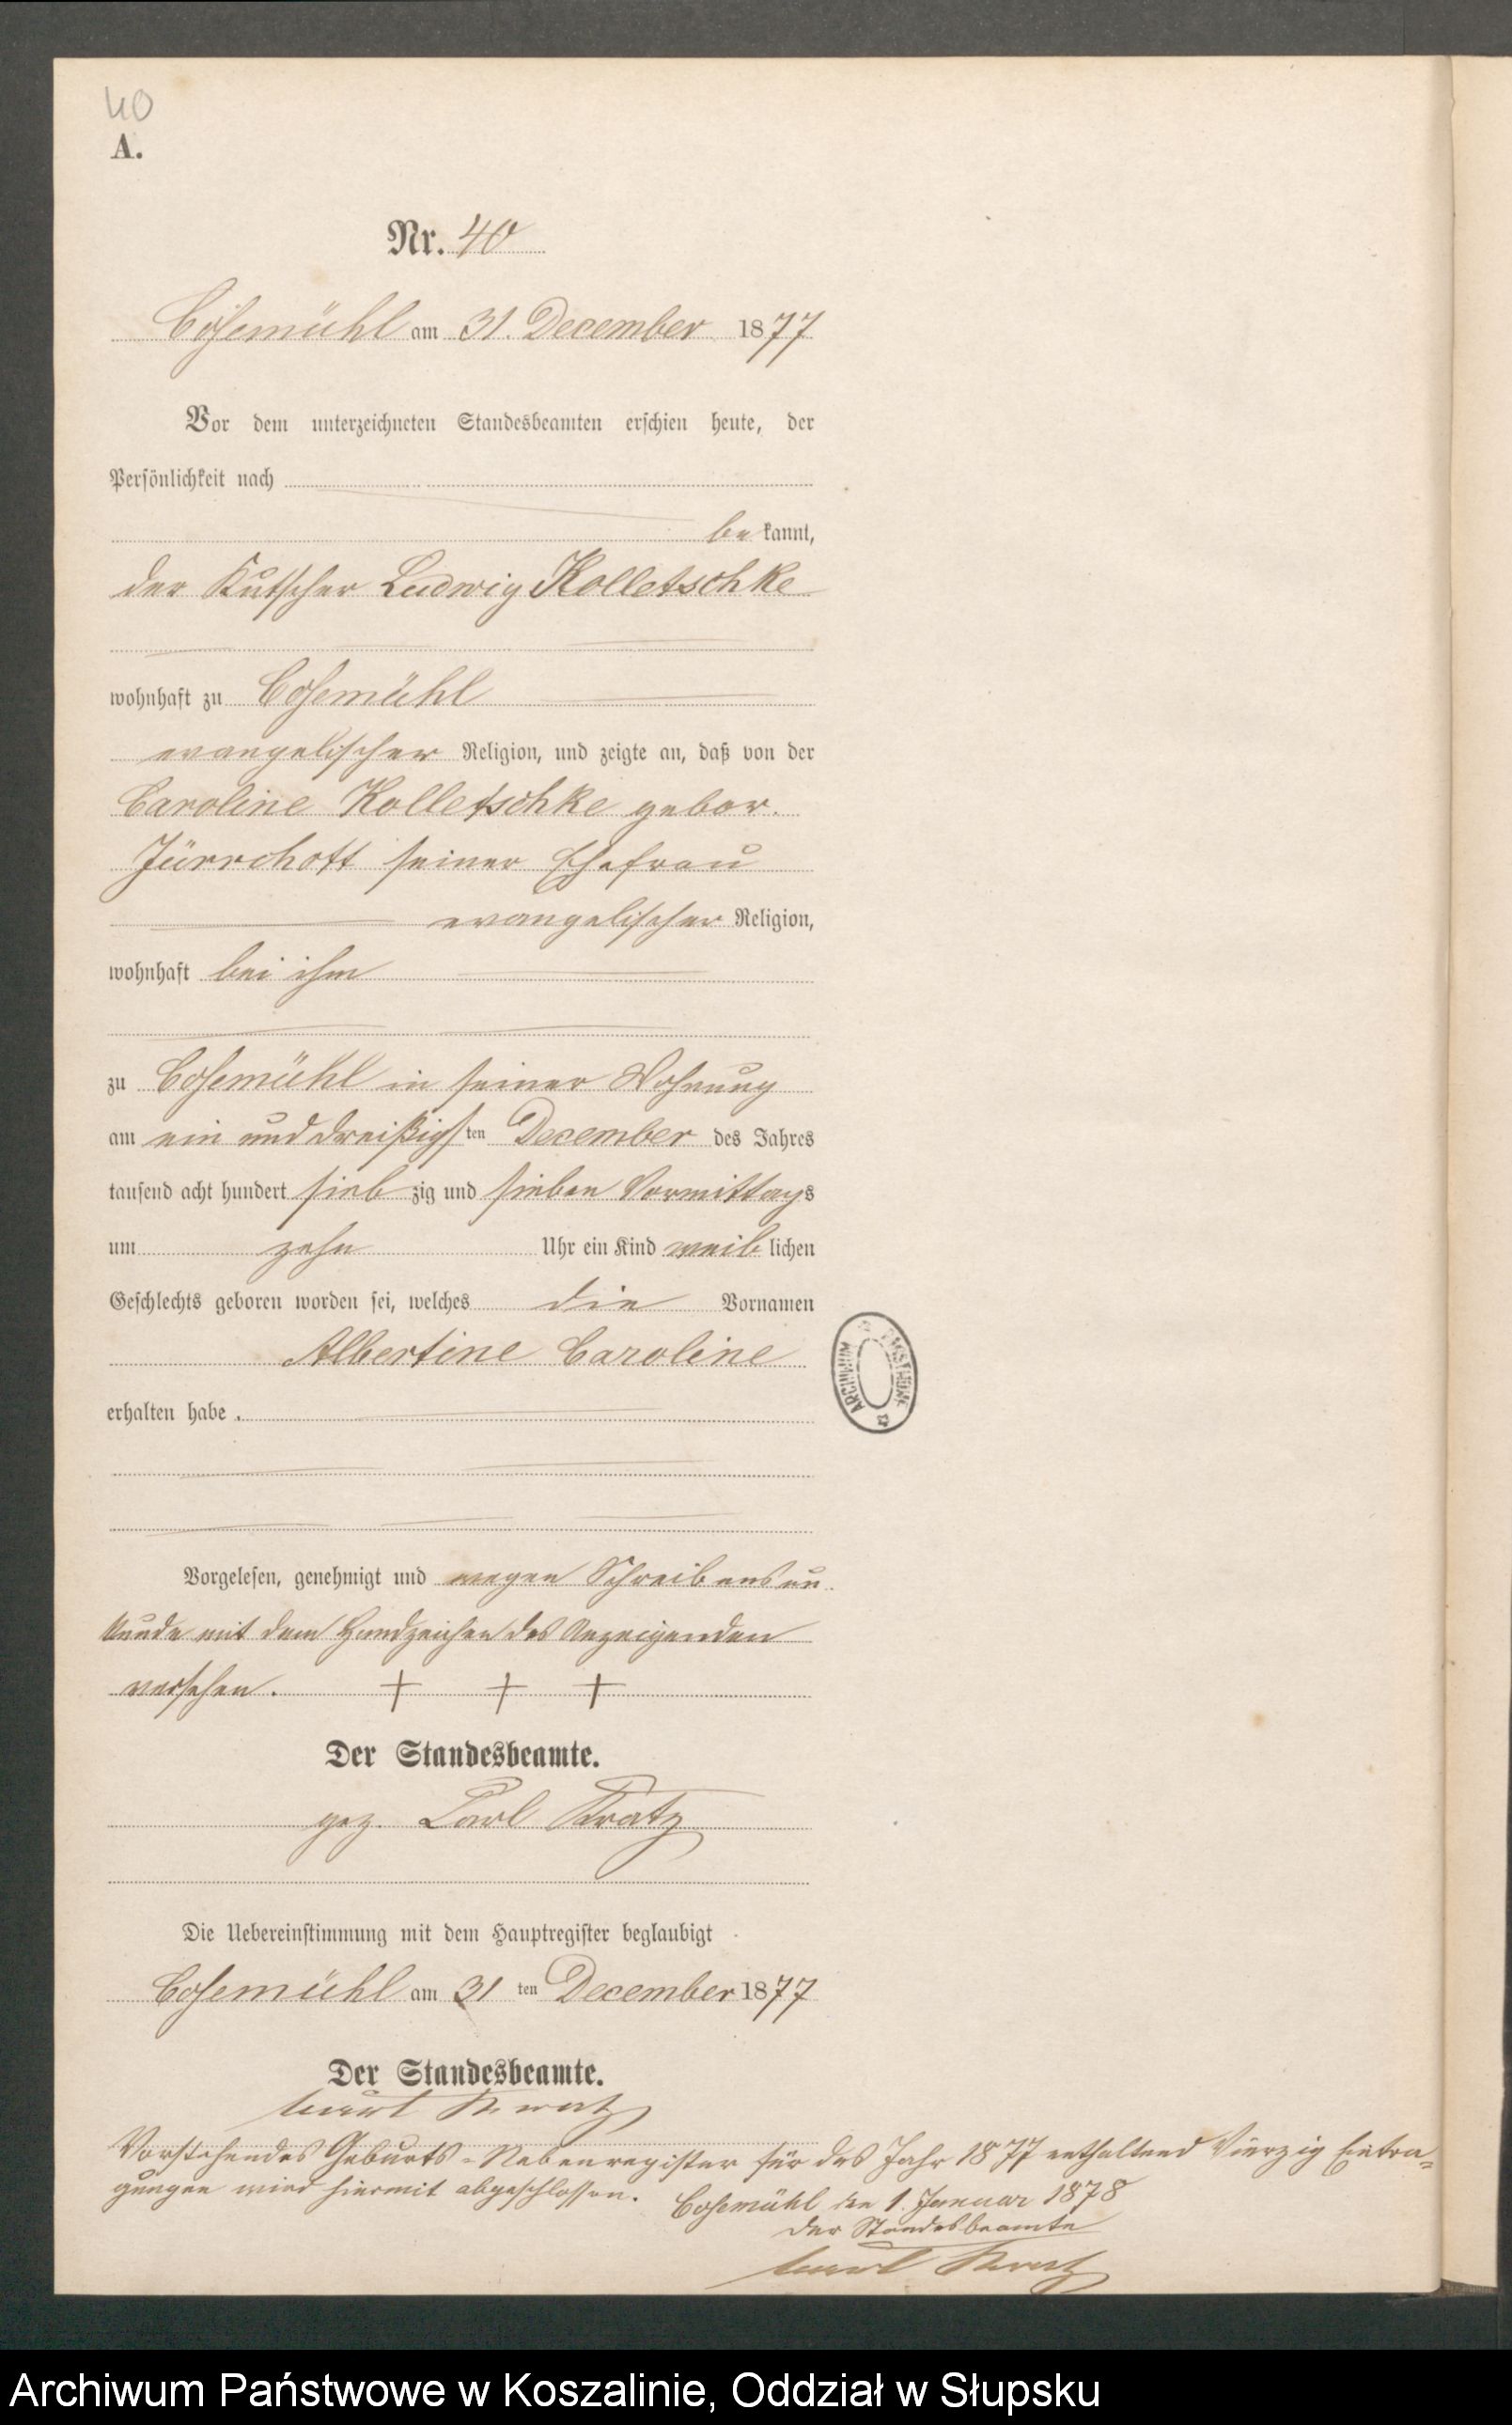 40
A.
Nr. 40
Cosemühl am 31. December 1877
Vor dem unterzeichneten Standesbeamten erschien heute, der
Persönlichkeit nach
be kannt,
der Kutscher Ludwig Kolletschke
wohnhaft zu Cosemühl
evangelischer Religion, und zeigte an, daß von der
Caroline Kolletschke gebor.
Jürrchott seiner Ehefrau
evangelischer Religion,
wohnhaft bei ihm
zu Cosemühl in seiner Wohnung
am ein und dreißigs ten December des Jahres
tausend acht hundert sieb zig und sieben Vormittags
um zehn Uhr ein Kind weib lichen
Geschlechts geboren worden sei, welches die Vornamen
Albertine Caroline
erhalten habe.
ARCHIWUM PAŃSTWOWE
Vorgelesen, genehmigt und wegen Schreibensun
kunde mit dem Handzeichen des Anzeigenden
versehen. + + +
Der Standesbeamte.
gez. Carl Kratz
Die Uebereinstimmung mit dem Hauptregister beglaubigt
Cosemühl am 31 ten December 1877
Der Standesbeamte.
Carl Kratz
Vorstehendes Geburts-Nebenregister für das Jahr 1877 enthaltend Vierzig Eintra=
gungen wird hiermit abgeschlossen. Cosemühl den 1. Januar 1878
Der Standesbeamte
Carl Kratz
Archiwum Państwowe w Koszalinie, Oddział w Słupsku